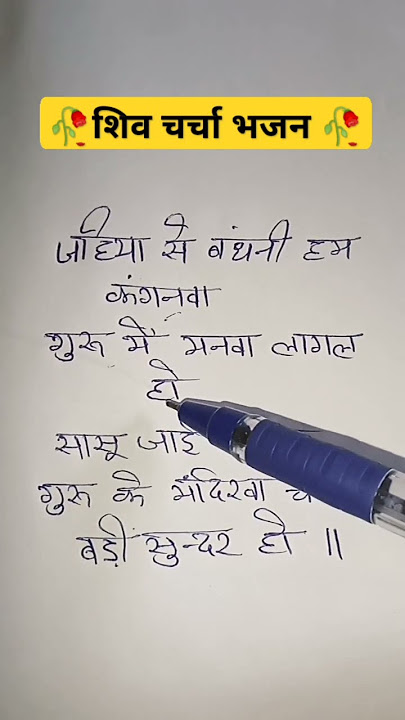 🥀शिव चर्चा भजन🥀
जहिया से बंधनी हम
कंगनवा
गुरू में मनवा लागल
हो
सासू जाइ
गुरू के मंदिरवा
बड़ी सुन्दर हो ॥